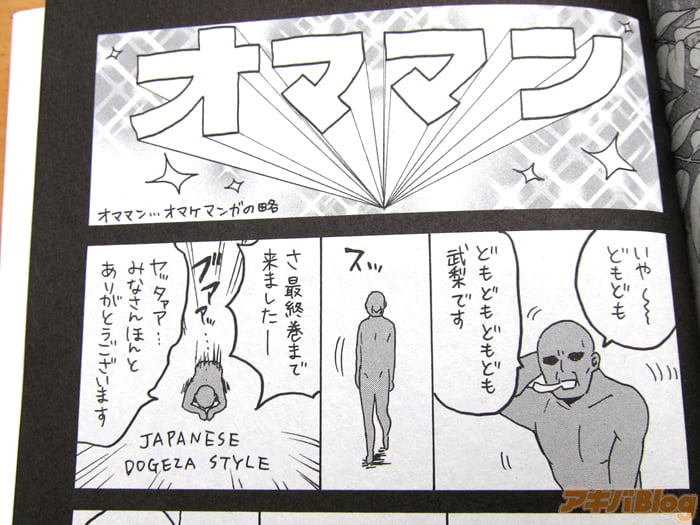 オママン
オママン…オマケマンガの略
いや〜〜
どもども
どもどもどもども
武梨です
スッ
さ 最終巻まで
来ましたー
ブァァァッ…
ヤッタァァ…
みなさんほんと
ありがとうございます
JAPANESE
DOGEZA STYLE
アキバBlog